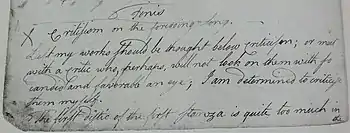 Finis
X Criticism on the foregoing song.
Lest my works should be thought below criticism; or meet
with a critic who, perhaps, will not look on them with so
candid and favorable an eye; I am determined to criticise
them myself.
The first distic of the first stanza is quite too much in
the